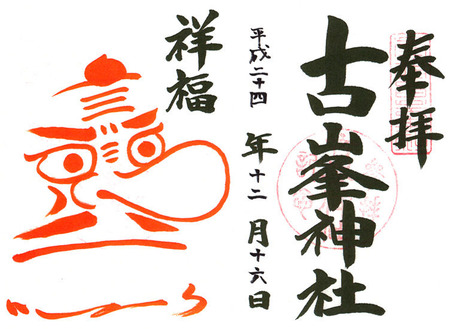 奉拝
古峯神社
平成二十四年十二月十六日
祥福